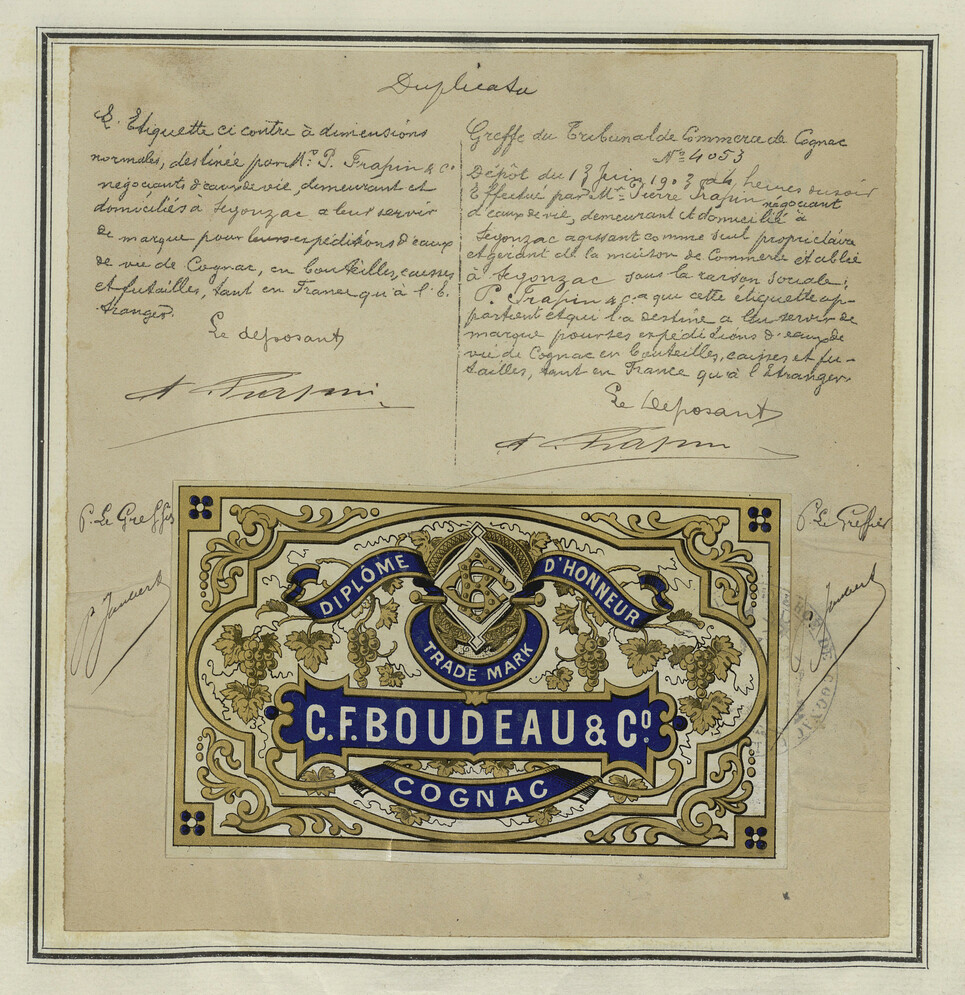 Duplicata
L'Etiquette ci contre à dimensions
normales, destinée par Mr. P. Frapin & Co
négociants d'eaux de vie, demeurant et
domiciliés à Segonzac a leur servir
de marque pour leurs expéditions d'eaux
de vie de Cognac, en bouteilles, caisses
et futailles, tant en France qu'à l'E-
tranger.
Le déposant
P. Frapin
Greffe du Tribunal de Commerce de Cognac
No 4053
Dépôt du 13 Juin 1903 à 4 heures du soir
Effectué par Mr Pierre Frapin négociant
d'eaux de vie, demeurant et domicilié à
Segonzac agissant comme seul propriétaire
et gérant de la maison de Commerce établie
à Segonzac sous la raison sociale;
P. Frapin & Co a qui cette étiquette ap-
partient et qui l'a destine a lui servir de
marque pour ses expéditions d'eaux de
vie de Cognac en bouteilles, caisses et fu-
tailles, tant en France qu'à l'Etranger.
Le Déposant
P. Frapin
P. Le Greffier
P. Le Greffier
DIPLÔME D'HONNEUR
TRADE MARK
C.F. BOUDEAU & Co.
COGNAC